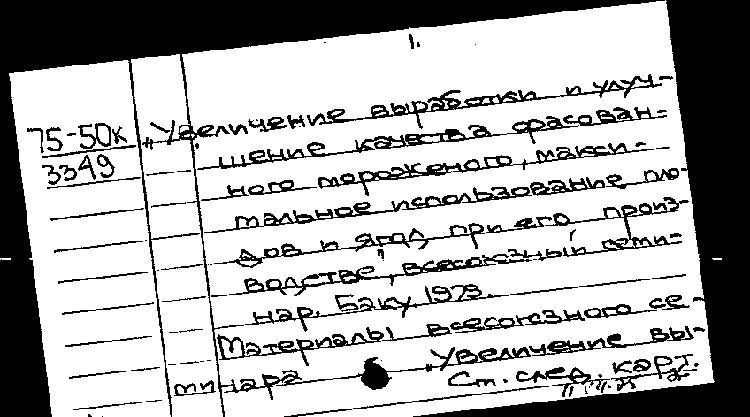 1.
75-50к
3349
„Увеличение выработки и улуч-
шение качества фасован-
ного мороженого, макси-
мальное использование пло-
дов и ягод при его произ-
водстве", всесоюзный семи-
нар. Баку. 1975.
Материалы всесоюзного се-
минара „Увеличение вы-
См. след. карт.